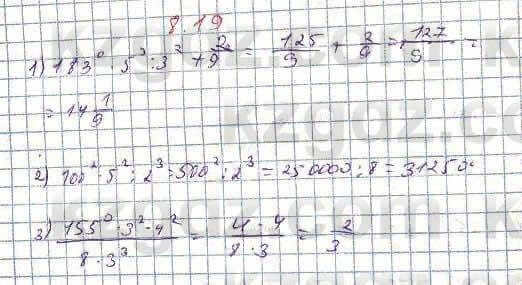 8.19
1) 183⁰ · 5³ : 3² + 2/9 = 125/9 + 2/9 = 127/9 =
= 14 1/9
2) 100² · 5² : 2³ = 500² : 2³ = 250000 : 8 = 31250
3) (155⁰ · 3² · 4²)/(8 · 3³) = (4 · 4)/(8 · 3) = 2/3
kzgdz.com